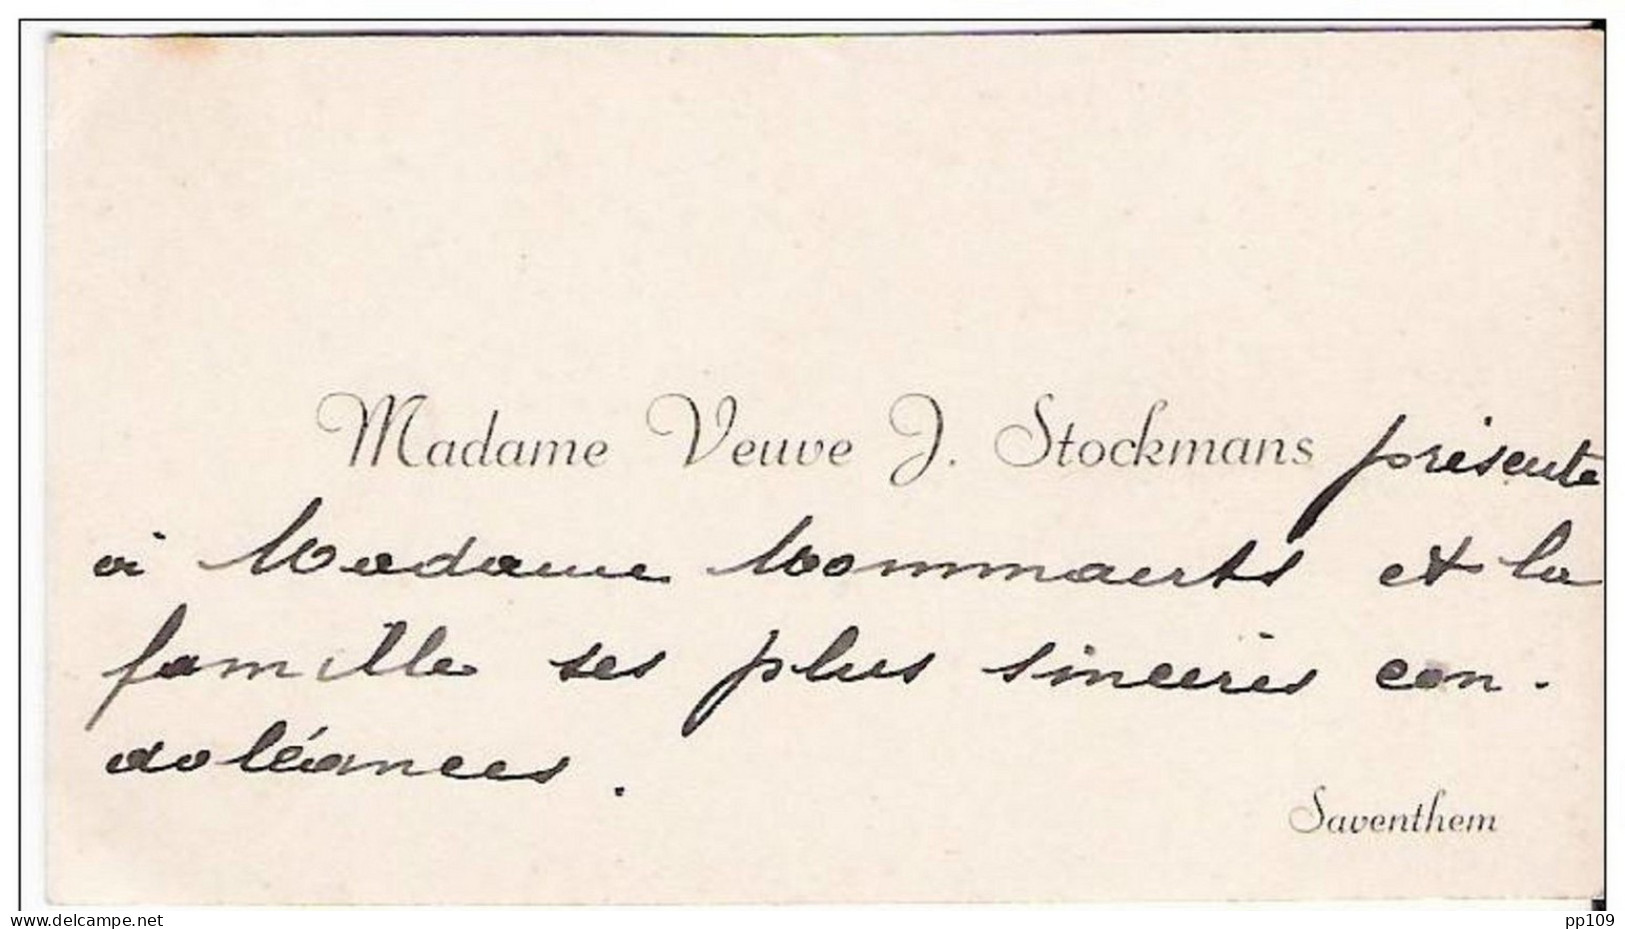 Madame Veuve J. Stockmans présente
à Madame Mommaerts et la
famille ses plus sincères con-
doléances.
Saventhem
www.delcampe.net
pp109